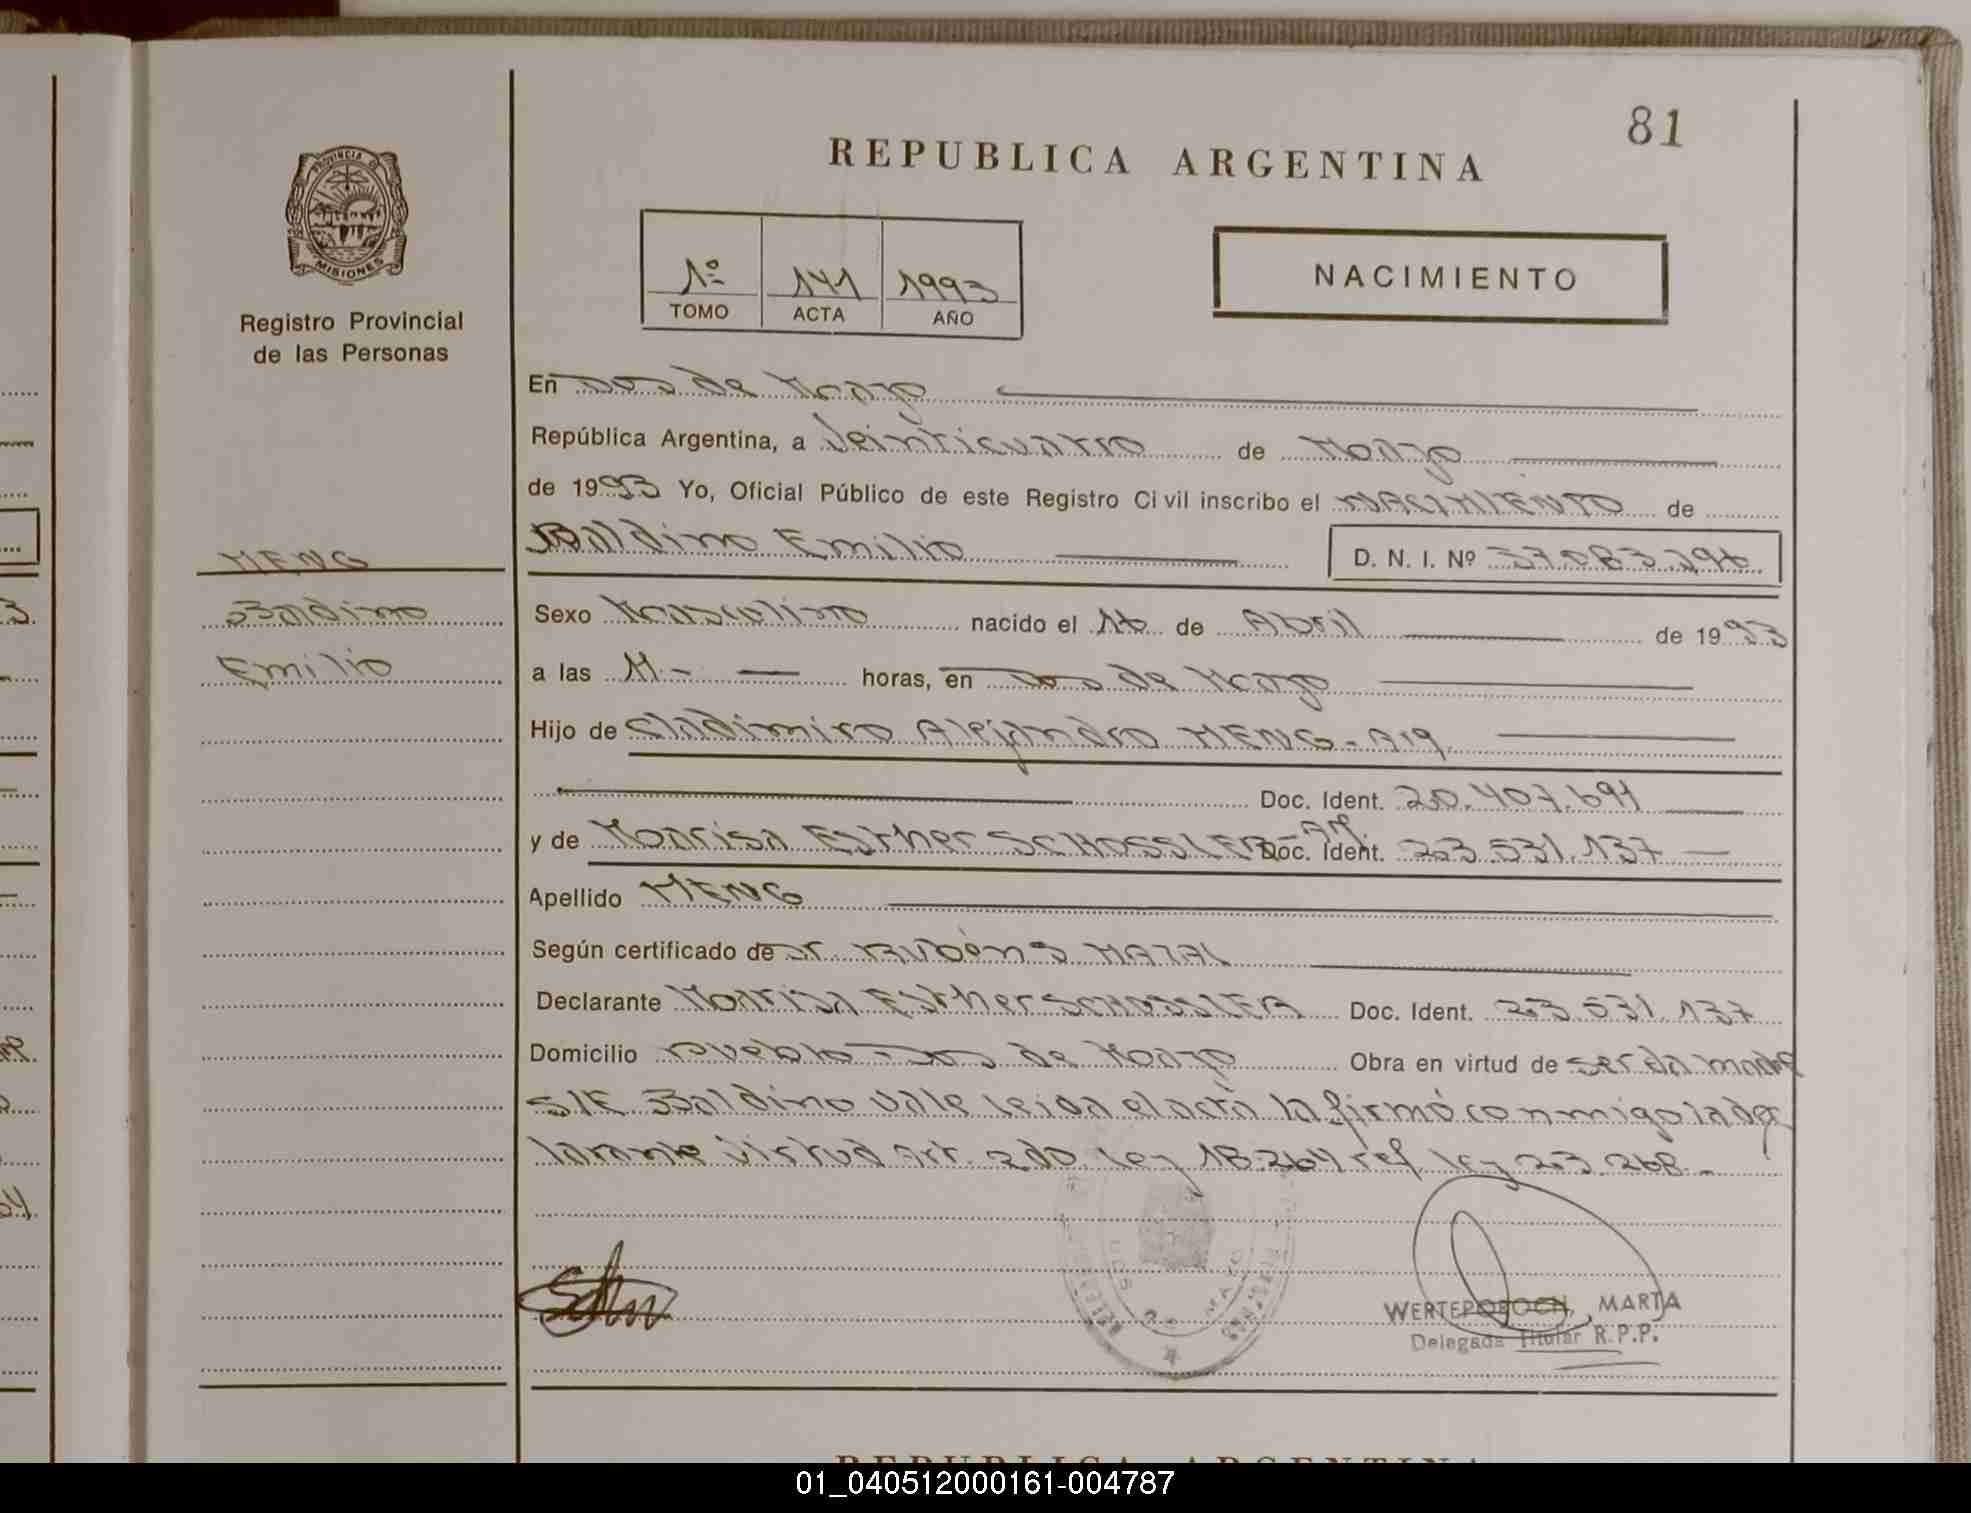 81
REPUBLICA ARGENTINA
PROVINCIA DE
MISIONES
Registro Provincial
de las Personas
1º 141 1993
TOMO ACTA AÑO
NACIMIENTO
En Dos de Mayo
República Argentina, a Veinticuatro de Mayo
de 1993 Yo, Oficial Público de este Registro Civil inscribo el NACIMIENTO de
Baldino Emilio D. N. I. Nº 37.083.296
MENG
Baldino
Emilio
Sexo Masculino nacido el 16 de Abril de 1993
a las 11- horas, en Dos de Mayo
Hijo de Cladimiro Alejandro MENG - Arg.
Doc. Ident. 20.407.691
y de Marisa Esther SCHOSSLER - Arg. Doc. Ident. 23.531.137
Apellido MENG
Según certificado de Dr. Rubén S. MATAL
Declarante Marisa Esther SCHOSSLER Doc. Ident. 23.531.137
Domicilio Pueblo Dos de Mayo Obra en virtud de ser la madre
S/E Baldino Vale leida el acta la firmó conmigo la dec
larante Virtud Art. 2do. Ley 18.264 ref. Ley 23.268.-
DOS DE MAYO
MISIONES
MARTA
Delegada Titular R.P.P.
REPUBLICA ARGENTINA
01_040512000161-004787